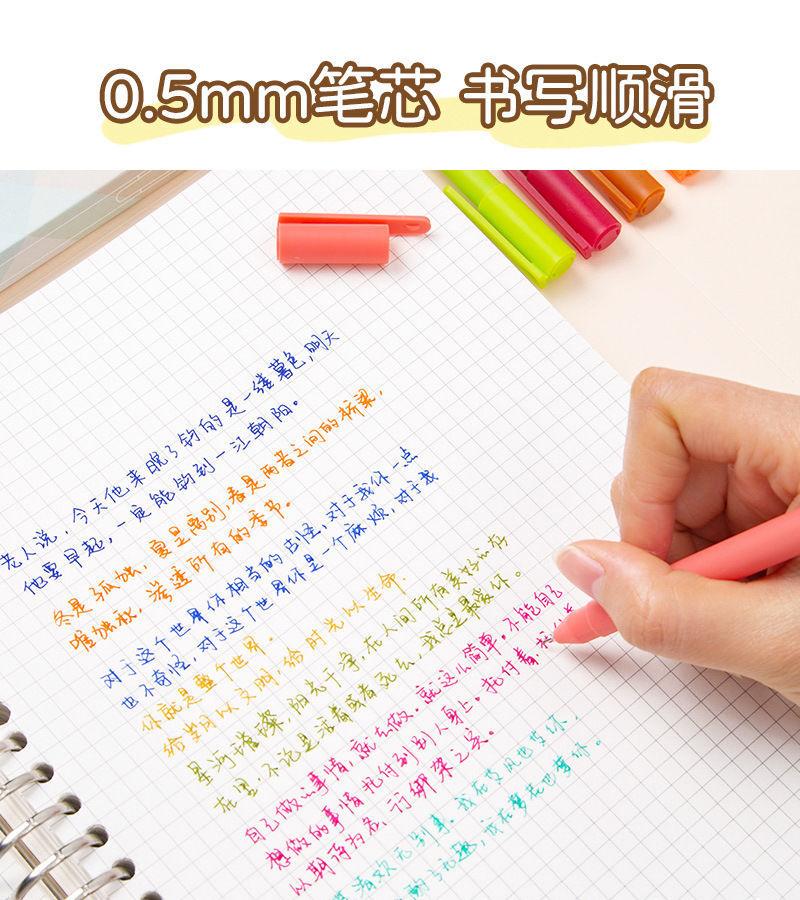 0.5mm笔芯 书写顺滑
老人说，今天他来眼了钓的是一缕暮色，明天
他要早起，一定能钓到一江朝阳。
冬是孤独，夏是离别，春是两者之间的桥梁，
唯独秋，渗透所有的季节。
对于这个世界你相当的古怪，对于我你一点
也不奇怪，对于这个世界你是一个麻烦，对于我
你就是整个世界.
给岁月以文明，给时光以生命.
星河璀璨，阳光干净，在人间所有美好
在里，不论是活着或者死去，我总是最爱你。
自己做的事情，就去做，就这么简单。不能自己
想做的事情托付到别人身上。托付着
以期待为名，行绑架之实。
喜欢无别事，我在